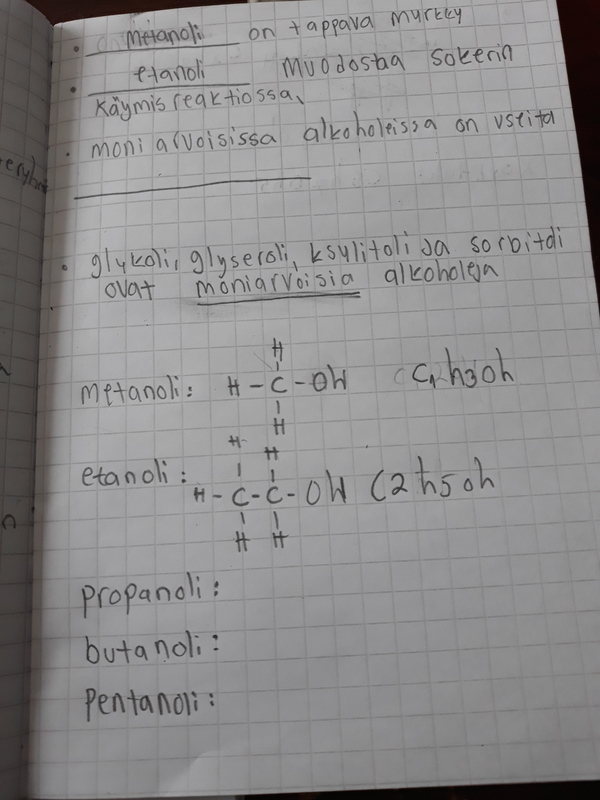 metanoli on tappava myrkky
etanoli muodostaa sokerin
käymisreaktiossa,
moniarvoisissa alkoholeissa on useita
glykoli, glyseroli, ksylitoli ja sorbitoli
ovat moniarvoisia alkoholeja
H
metanoli: H - C - OH C1h3oh
H
H H
etanoli: H - C - C - OH C2h5oh
H H
propanoli:
butanoli:
pentanoli: